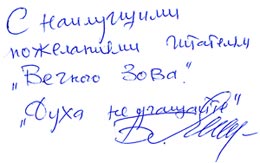 С наилучшими
пожеланиями читателям
"Вечного Зова".
"Духа не угашайте"